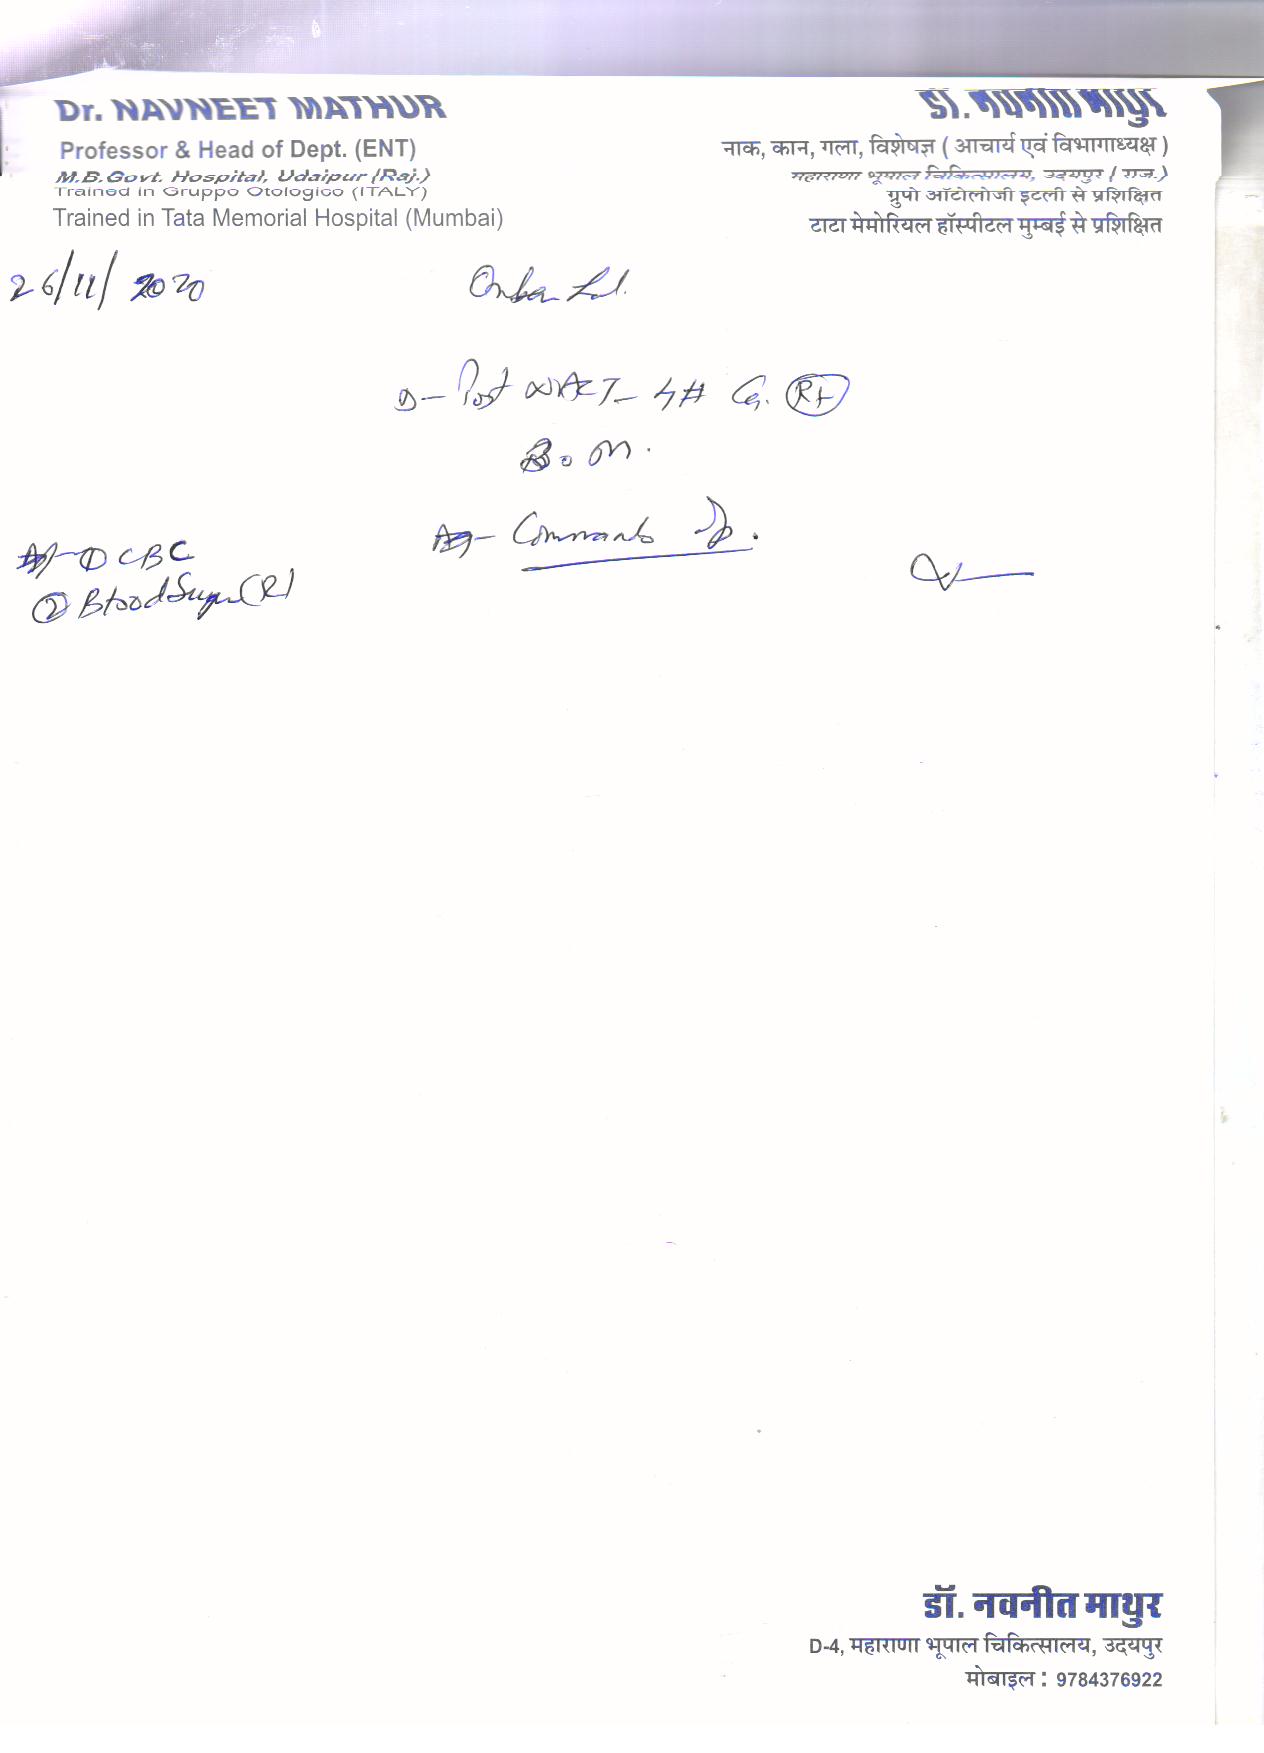 Dr. NAVNEET MATHUR
Professor & Head of Dept. (ENT)
M.B.Govt. Hospital, Udaipur (Raj.)
Trained in Gruppo Otologico (ITALY)
Trained in Tata Memorial Hospital (Mumbai)
डॉ. नवनीत माथुर
नाक, कान, गला, विशेषज्ञ ( आचार्य एवं विभागाध्यक्ष )
महाराणा भूपाल चिकित्सालय, उदयपुर ( राज.)
ग्रुपो ऑटोलोजी इटली से प्रशिक्षित
टाटा मेमोरियल हॉस्पीटल मुम्बई से प्रशिक्षित
26/11/2020
Lal.
D- Post NACT- 4# Ca. Rt
B.M.
Commando
① CBC
② Blood Sugar (R)
डॉ. नवनीत माथुर
D-4, महाराणा भूपाल चिकित्सालय, उदयपुर
मोबाइल : 9784376922